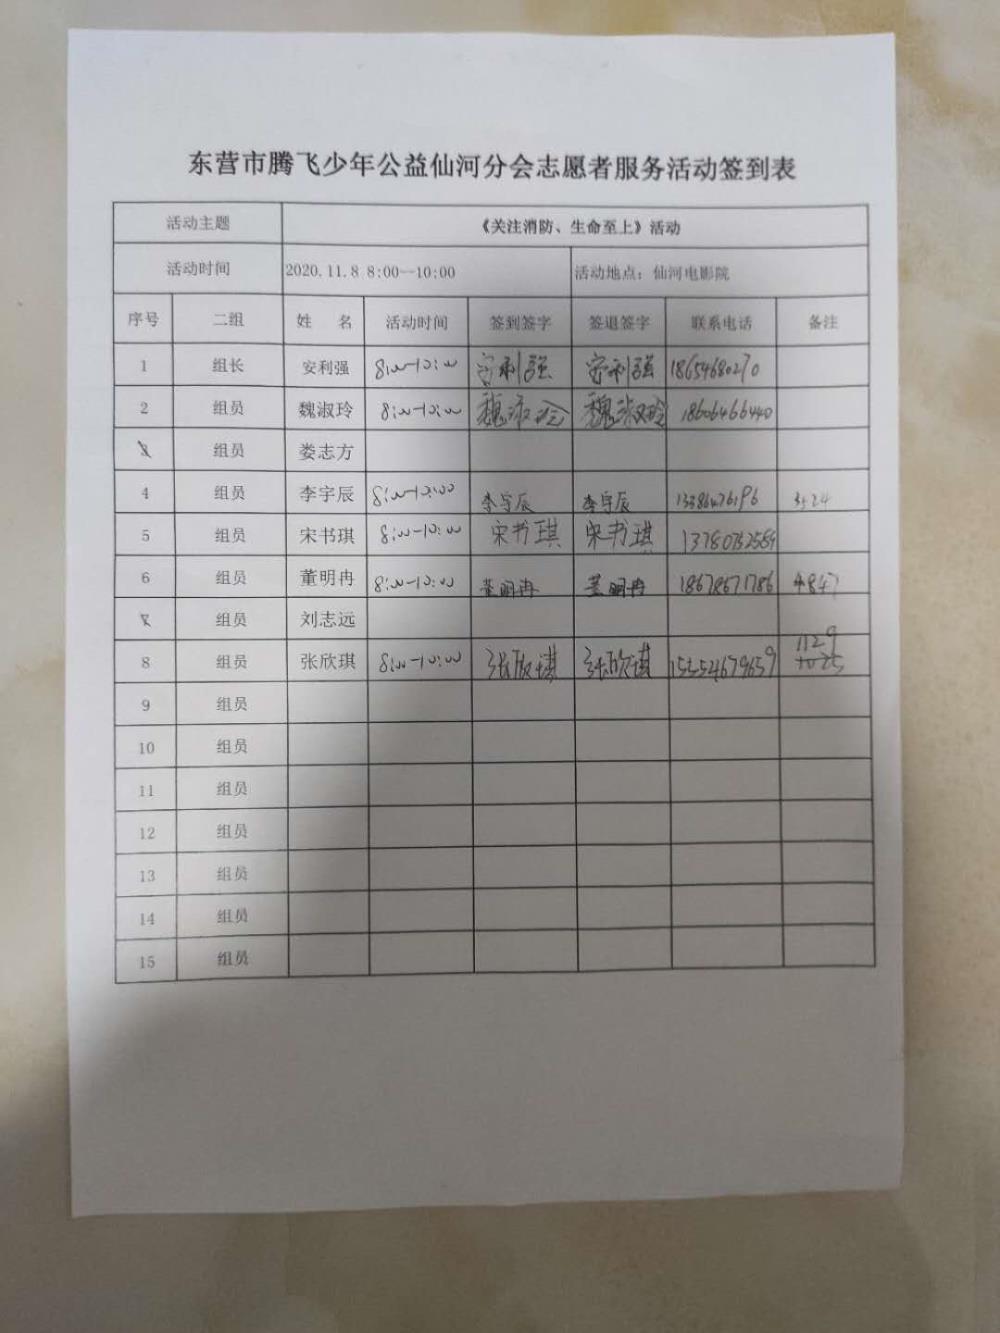 东营市腾飞少年公益仙河分会志愿者服务活动签到表
活动主题 《关注消防、生命至上》活动
活动时间 2020.11.8 8:00—10:00 活动地点：仙河电影院
序号 二组 姓 名 活动时间 签到签字 签退签字 联系电话 备注
1 组长 安利强 8:00-10:00 安利强 安利强 18654680270
2 组员 魏淑玲 8:00-10:00 魏淑玲 魏淑玲 18606466440
3 组员 娄志方
4 组员 李宇辰 8:00-10:00 李宇辰 李宇辰
5 组员 宋书琪 8:00-10:00 宋书琪 宋书琪
6 组员 董明冉 8:00-10:00 董明冉 董明冉 18678671786 4847
7 组员 刘志远
8 组员 张欣琪 8:00-10:00 张欣琪 张欣琪 15354679659 1129
9 组员
10 组员
11 组员
12 组员
13 组员
14 组员
15 组员